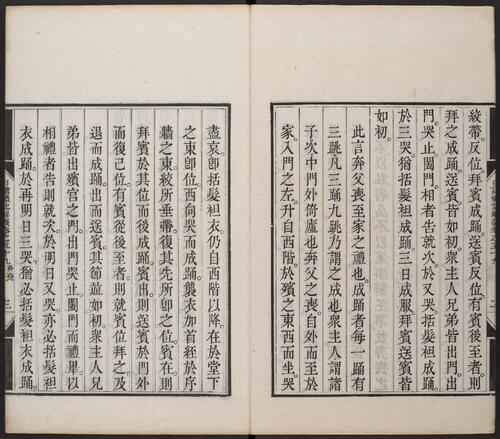 絞帶。反位。拜賓成踊。送賓反位。有賓後至者。則
拜之成踊。送賓皆如初。衆主人兄弟皆出門。出
門。哭止。闔門。相者告就次。於又哭。括髮袒成踊。
於三哭。猶括髮袒成踊。三日成服。拜賓送賓皆
如初。
此言奔父喪至家之禮也。成踊者每一踊有
三跳凡三踊九跳乃謂之成也衆主人謂諸
子次中門外倚廬也奔父之喪。自外而至於
家。入門之左。升自西階。於殯之東西面坐。哭
盡哀。卽括髮袒衣仍自西階以降。在於堂下
之東。卽位。西向哭而成踊。襲衣加首絰於序
牆之東。絞所垂帶。復其先所卽之位。賓在。則
拜賓於其位而後成踊。賓出則送賓於門外
而復己位。有賓從後至者。則就賓位拜之。及
退而成踊。出而送賓。其節並如初。衆主人兄
弟皆出殯宮之門。出門哭止。闔門而禮畢。以
相禮者告則就次。於明日又哭。亦必括髮袒
衣成踊。於再明日三哭。猶必括髮袒衣成踊。
奔喪
三